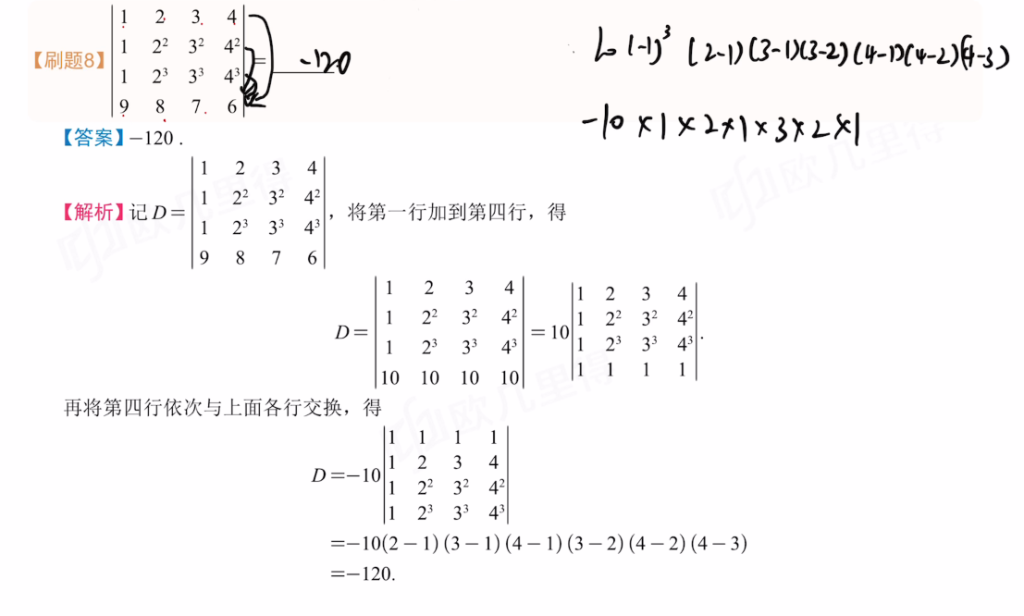 【刷题8】
1 2 3 4
1 2² 3² 4²
1 2³ 3³ 4³
9 8 7 6
= -120
10 (-1)³ (2-1)(3-1)(3-2)(4-1)(4-2)(4-3)
-10×1×2×1×3×2×1
【答案】−120 .
【解析】记 D =
1 2 3 4
1 2² 3² 4²
1 2³ 3³ 4³
9 8 7 6
，将第一行加到第四行，得
D =
1 2 3 4
1 2² 3² 4²
1 2³ 3³ 4³
10 10 10 10
= 10
1 2 3 4
1 2² 3² 4²
1 2³ 3³ 4³
1 1 1 1
.
再将第四行依次与上面各行交换，得
D =−10
1 1 1 1
1 2 3 4
1 2² 3² 4²
1 2³ 3³ 4³
=−10(2−1)(3−1)(4−1)(3−2)(4−2)(4−3)
=−120.
欧几里得
欧几里得
欧几里得